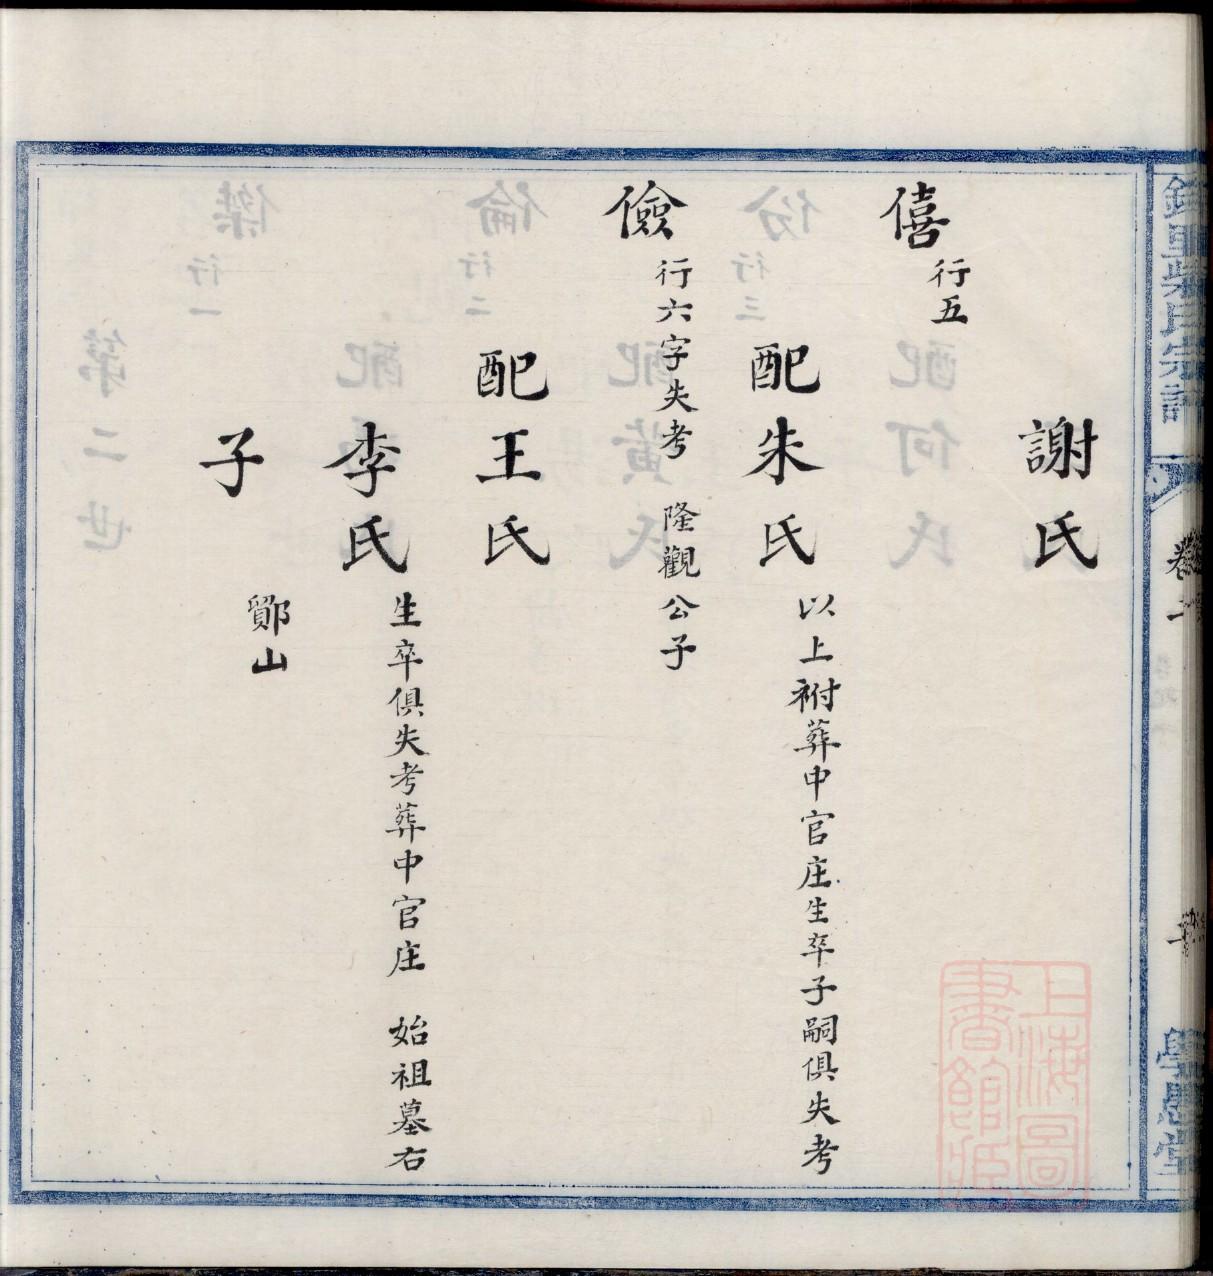 謝氏
僖行五
配朱氏以上祔葬中官庄生卒子嗣俱失考
儉行六字失考 隆觀公子
配王氏
李氏生卒俱失考葬中官庄 始祖墓右
子鄮山
氏宗譜
卷一
學愚堂
上海圖書館藏